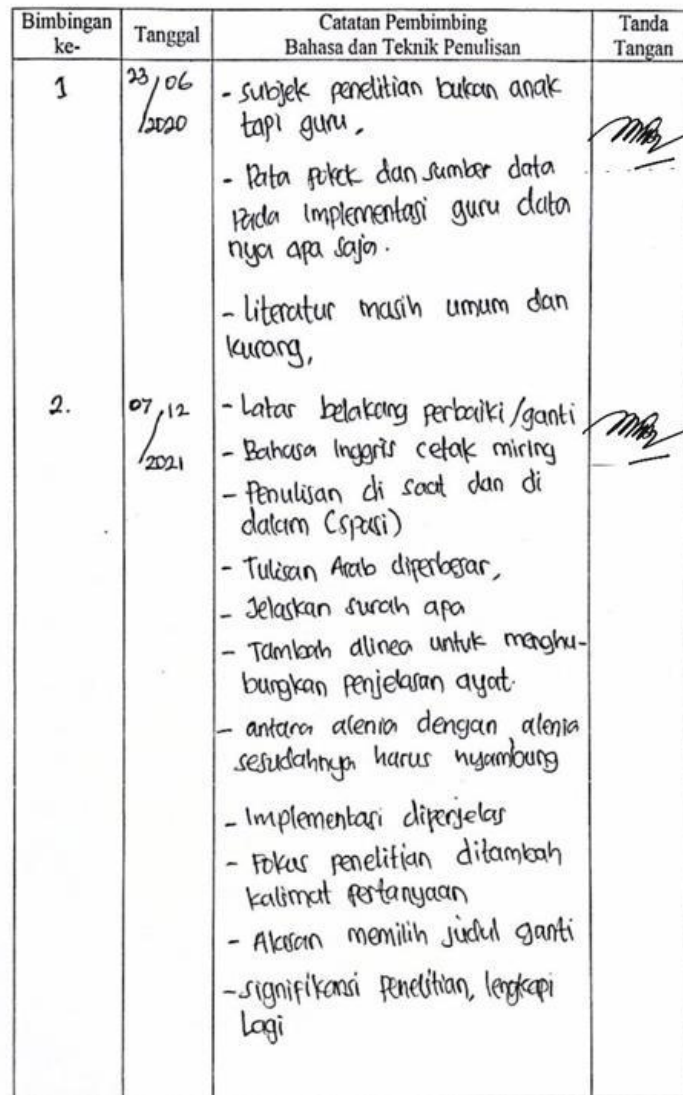 Bimbingan ke-
Tanggal
Catatan Pembimbing
Bahasa dan Teknik Penulisan
Tanda Tangan
1
23/06/2020
- Subjek penelitian bukan anak
tapi guru,
- Data pokok dan sumber data
pada implementasi guru data
nya apa saja.
- literatur masih umum dan
kurang,
2.
07/12/2021
- Latar belakang perbaiki/ganti
- Bahasa Inggris cetak miring
- Penulisan di saat dan di
dalam (spasi)
- Tulisan Arab diperbesar,
- Jelaskan surah apa
- Tambah alinea untuk menghu-
bungkan penjelasan ayat.
- antara alenia dengan alenia
sesudahnya harus nyambung
- Implementasi diperjelas
- Fokus penelitian ditambah
kalimat pertanyaan
- Alasan memilih judul ganti
- signifikansi penelitian, lengkapi
Lagi